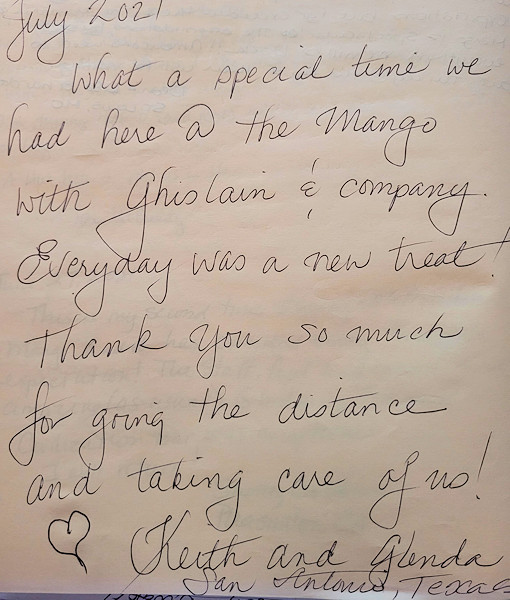 July 2021
What a special time we
had here @ the Mango
with Ghislain & company.
Everyday was a new treat!
Thank you so much
for going the distance
and taking care of us!
Keith and Glenda
San Antonio, Texas